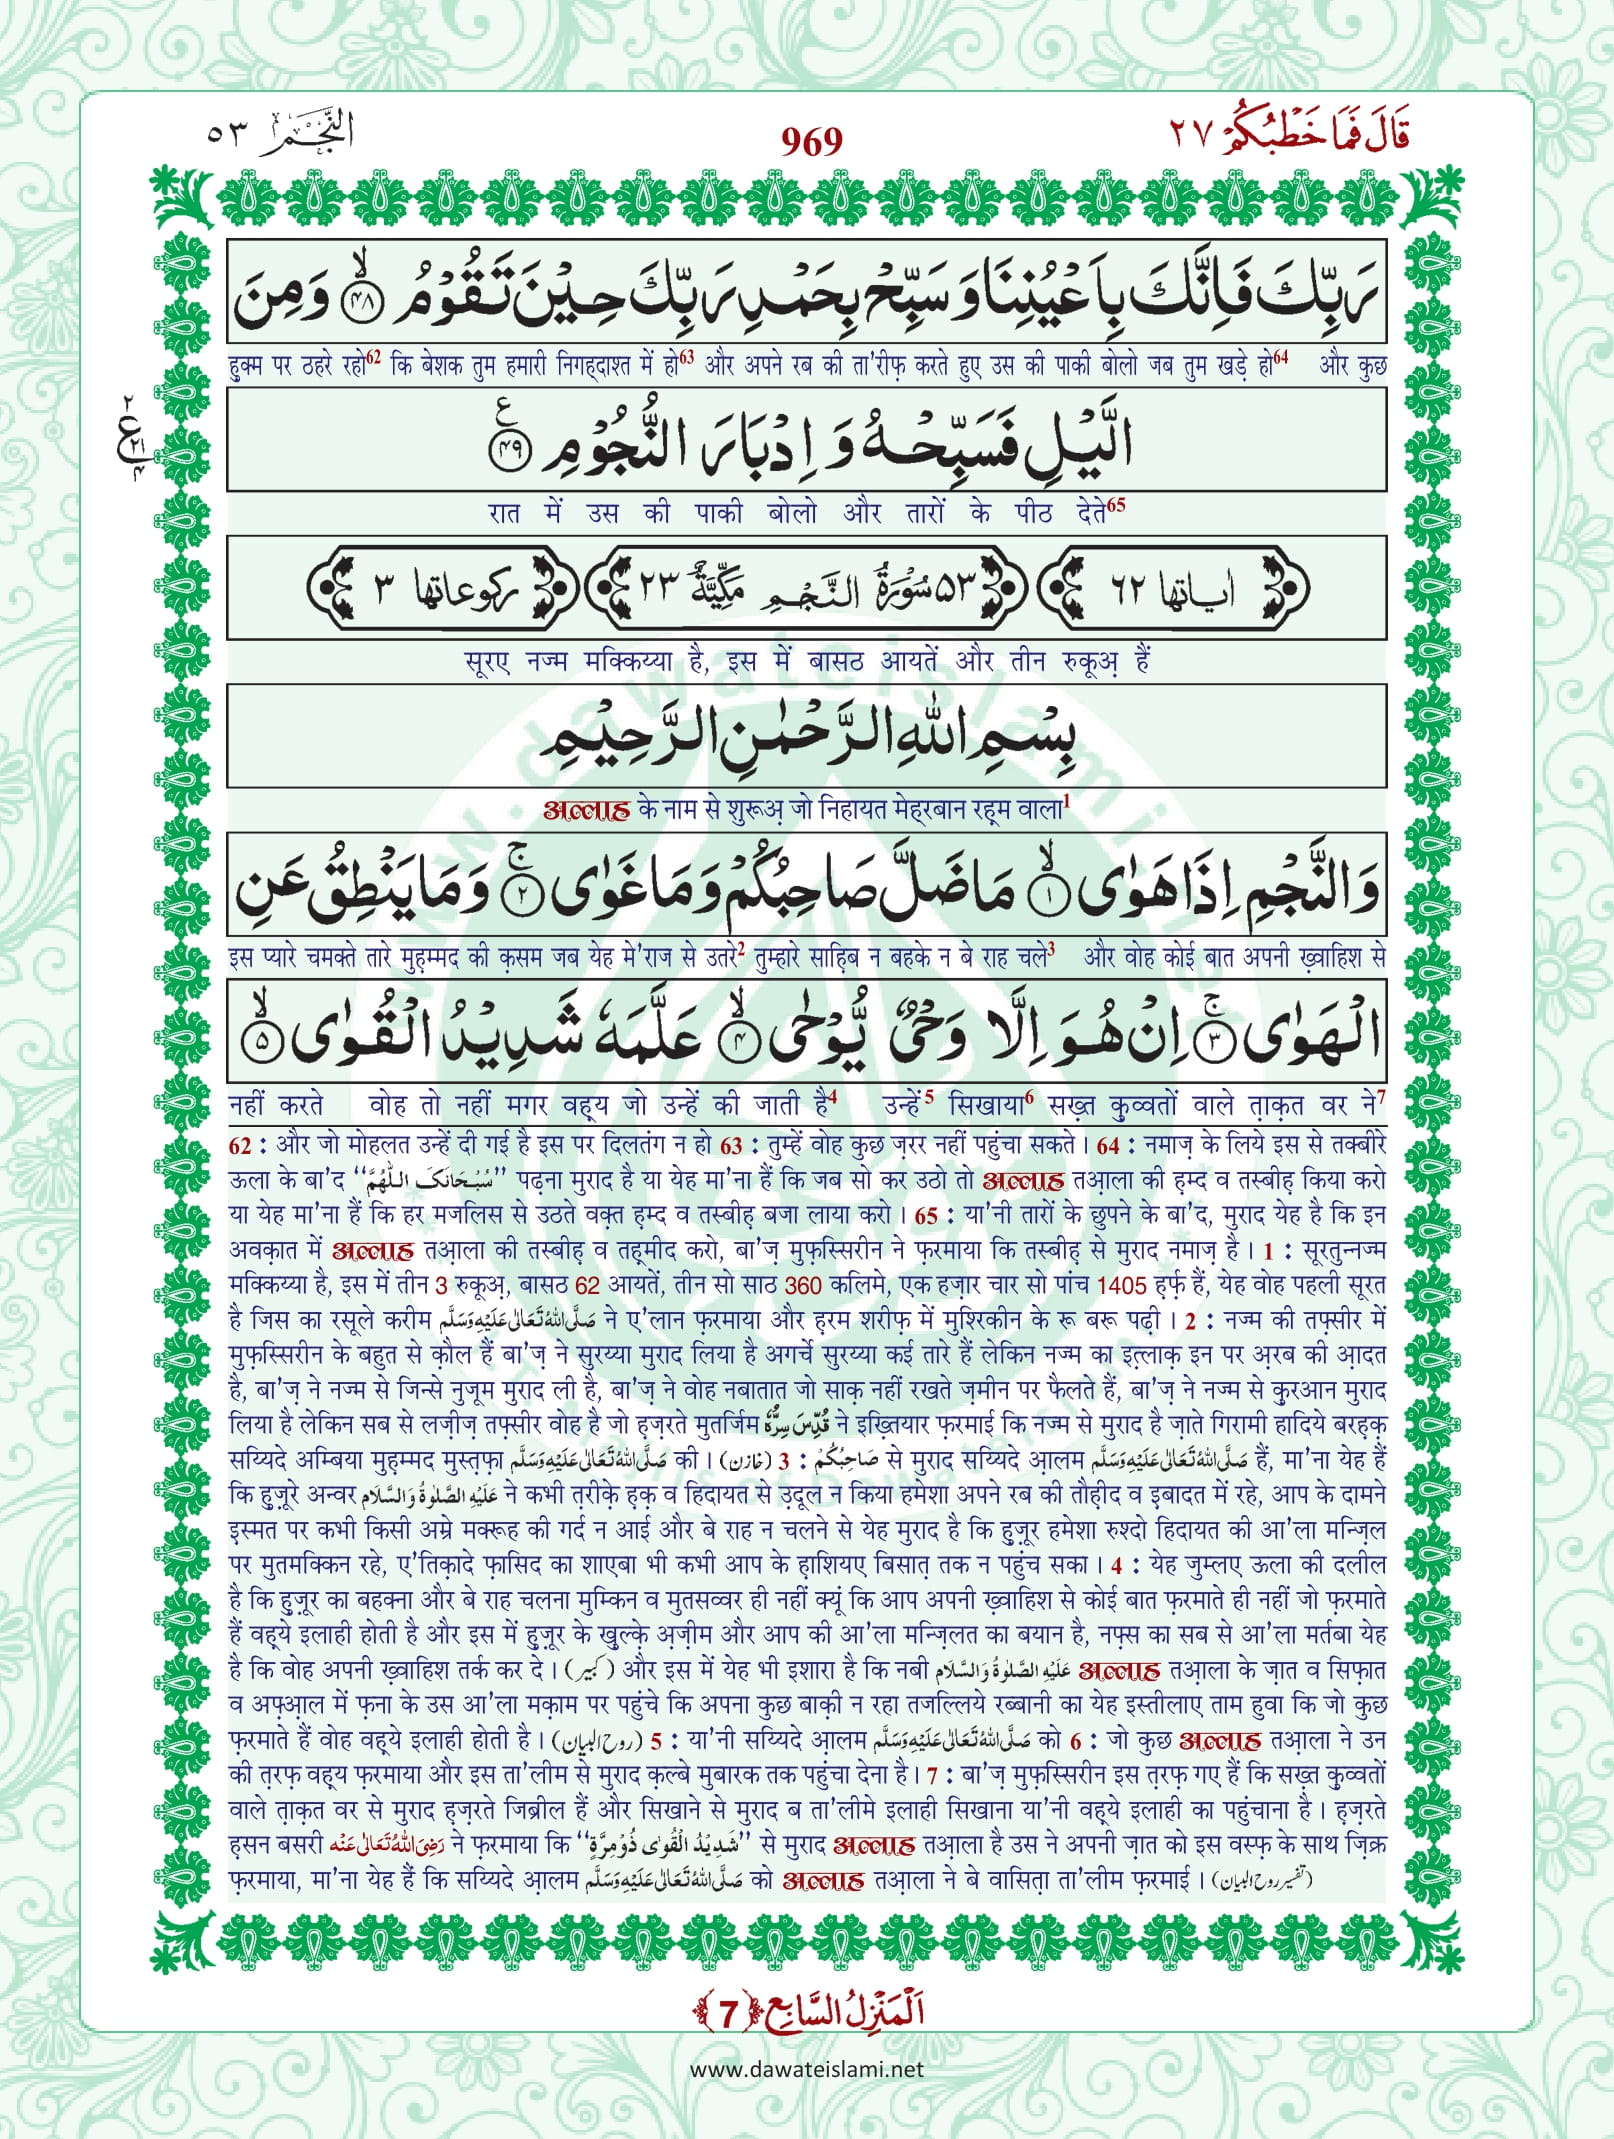 قَالَ فَمَا خَطْبُكُمْ ٢٧
969
النَّجْم ٥٣
رَبِّكَ فَاِنَّكَ بِاَعْيُنِنَا وَ سَبِّحْ بِحَمْدِ رَبِّكَ حِيْنَ تَقُوْمُ ۙ﴿۴۸﴾ وَ مِنَ
हुक्म पर ठहरे रहो62 कि बेशक तुम हमारी निगह्दाश्त में हो63 और अपने रब की ता'रीफ़ करते हुए उस की पाकी बोलो जब तुम खड़े हो64 और कुछ
الَّيْلِ فَسَبِّحْهُ وَ اِدْبَارَ النُّجُوْمِ ﴿۴۹﴾ ع
٢ ع ٢١ ۴
रात में उस की पाकी बोलो और तारों के पीठ देते65
اٰیاتها ٦٢
٥٣ سُوْرَةُ النَّجْمِ مَكِّيَّةٌ ٢٣
ركوعاتها ٣
सूरए नज्म मक्किय्या है, इस में बासठ आयतें और तीन रुकूअ़ हैं
بِسْمِ اللّٰهِ الرَّحْمٰنِ الرَّحِيْمِ
अल्लाह के नाम से शुरूअ़ जो निहायत मेह्रबान रह़्म वाला1
وَ النَّجْمِ اِذَا هَوٰى ۙ﴿۱﴾ مَا ضَلَّ صَاحِبُكُمْ وَ مَا غَوٰى ۚ﴿۲﴾ وَ مَا يَنْطِقُ عَنِ
इस प्यारे चमक्ते तारे मुह़म्मद की क़सम जब येह मे'राज से उतरे2 तुम्हारे साह़िब न बहके न बे राह चले3 और वोह कोई बात अपनी ख़्वाहिश से
الْهَوٰى ۚ﴿۳﴾ اِنْ هُوَ اِلَّا وَحْيٌ يُّوْحٰى ۙ﴿۴﴾ عَلَّمَهٗ شَدِيْدُ الْقُوٰى ۙ﴿۵﴾
नहीं करते वोह तो नहीं मगर वह़्य जो उन्हें की जाती है4 उन्हें5 सिखाया6 सख़्त क़ुव्वतों वाले त़ाक़त वर ने7
62 : और जो मोहलत उन्हें दी गई है इस पर दिलतंग न हो 63 : तुम्हें वोह कुछ ज़रर नहीं पहुंचा सकते । 64 : नमाज़ के लिये इस से तक्बीरे
ऊला के बा'द ‘‘سُبْحَانَكَ اللّٰهُمَّ’’ पढ़ना मुराद है या येह मा'ना हैं कि जब सो कर उठो तो अल्लाह तआ़ला की ह़म्द व तस्बीह़ किया करो
या येह मा'ना हैं कि हर मजलिस से उठते वक़्त ह़म्द व तस्बीह़ बजा लाया करो । 65 : या'नी तारों के छुपने के बा'द, मुराद येह है कि इन
अवक़ात में अल्लाह तआ़ला की तस्बीह़ व तह़्मीद करो, बा'ज़ मुफ़स्सिरीन ने फ़रमाया कि तस्बीह़ से मुराद नमाज़ है । 1 : सूरतुन्नज्म
मक्किय्या है, इस में तीन 3 रुकूअ़, बासठ 62 आयतें, तीन सो साठ 360 कलिमे, एक हज़ार चार सो पांच 1405 ह़र्फ़ हैं, येह वोह पहली सूरत
है जिस का रसूले करीम صَلَّى اللهُ تَعَالٰى عَلَيْهِ وَسَلَّم ने ए'लान फ़रमाया और ह़रम शरीफ़ में मुश्रिकीन के रू बरू पढ़ी । 2 : नज्म की तफ़्सीर में
मुफ़स्सिरीन के बहुत से क़ौल हैं बा'ज़ ने सुरय्या मुराद लिया है अगर्चे सुरय्या कई तारे हैं लेकिन नज्म का इत़्लाक़ इन पर अ़रब की आ़दत
है, बा'ज़ ने नज्म से जिन्से नुजूम मुराद ली है, बा'ज़ ने वोह नबातात जो साक़ नहीं रखते ज़मीन पर फैलते हैं, बा'ज़ ने नज्म से क़ुरआन मुराद
लिया है लेकिन सब से लज़ीज़ तफ़्सीर वोह है जो ह़ज़रते मुतर्जिम قُدِّسَ سِرُّهٗ ने इख़्तियार फ़रमाई कि नज्म से मुराद है ज़ाते गिरामी हादिये बरह़क़
सय्यिदे अम्बिया मुह़म्मद मुस्त़फ़ा صَلَّى اللهُ تَعَالٰى عَلَيْهِ وَسَلَّم की । (خازن) 3 : صَاحِبُكُمْ से मुराद सय्यिदे आ़लम صَلَّى اللهُ تَعَالٰى عَلَيْهِ وَسَلَّم हैं, मा'ना येह हैं
कि हुज़ूरे अन्वर عَلَيْهِ الصَّلٰوةُ وَالسَّلَام ने कभी त़रीक़े ह़क़ व हिदायत से उ़दूल न किया हमेशा अपने रब की तौह़ीद व इबादत में रहे, आप के दामने
इ़स्मत पर कभी किसी अम्रे मक्रूह की गर्द न आई और बे राह न चलने से येह मुराद है कि हुज़ूर हमेशा रुश्दो हिदायत की आ'ला मन्ज़िल
पर मुतमक्किन रहे, ए'तिक़ादे फ़ासिद का शाएबा भी कभी आप के ह़ाशियए बिसात़ तक न पहुंच सका । 4 : येह जुम्लए ऊला की दलील
है कि हुज़ूर का बहक्ना और बे राह चलना मुम्किन व मुतसव्वर ही नहीं क्यूं कि आप अपनी ख़्वाहिश से कोई बात फ़रमाते ही नहीं जो फ़रमाते
हैं वह़्ये इलाही होती है और इस में हुज़ूर के ख़ुल्क़े अ़ज़ीम और आप की आ'ला मन्ज़िलत का बयान है, नफ़्स का सब से आ'ला मर्तबा येह
है कि वोह अपनी ख़्वाहिश तर्क कर दे । (كبير) और इस में येह भी इशारा है कि नबी عَلَيْهِ الصَّلٰوةُ وَالسَّلَام अल्लाह तआ़ला के ज़ात व सिफ़ात
व अफ़्आ़ल में फ़ना के उस आ'ला मक़ाम पर पहुंचे कि अपना कुछ बाक़ी न रहा तजल्लिये रब्बानी का येह इस्तीलाए ताम हुवा कि जो कुछ
फ़रमाते हैं वोह वह़्ये इलाही होती है । (روح البيان) 5 : या'नी सय्यिदे आ़लम صَلَّى اللهُ تَعَالٰى عَلَيْهِ وَسَلَّم को 6 : जो कुछ अल्लाह तआ़ला ने उन
की त़रफ़ वह़्य फ़रमाया और इस ता'लीम से मुराद क़ल्बे मुबारक तक पहुंचा देना है । 7 : बा'ज़ मुफ़स्सिरीन इस त़रफ़ गए हैं कि सख़्त क़ुव्वतों
वाले त़ाक़त वर से मुराद ह़ज़रते जिब्रील हैं और सिखाने से मुराद ब ता'लीमे इलाही सिखाना या'नी वह़्ये इलाही का पहुंचाना है । ह़ज़रते
ह़सन बसरी رَضِىَ اللهُ تَعَالٰى عَنْه ने फ़रमाया कि ‘‘شَدِيْدُ الْقُوٰى ذُوْ مِرَّةٍ’’ से मुराद अल्लाह तआ़ला है उस ने अपनी ज़ात को इस वस्फ़ के साथ ज़िक्र
फ़रमाया, मा'ना येह हैं कि सय्यिदे आ़लम صَلَّى اللهُ تَعَالٰى عَلَيْهِ وَسَلَّم को अल्लाह तआ़ला ने बे वासित़ा ता'लीम फ़रमाई । (تفسير روح البيان)
اَلْمَنْزِلُ السَّابِع ﴿7﴾
www.dawateislami.net